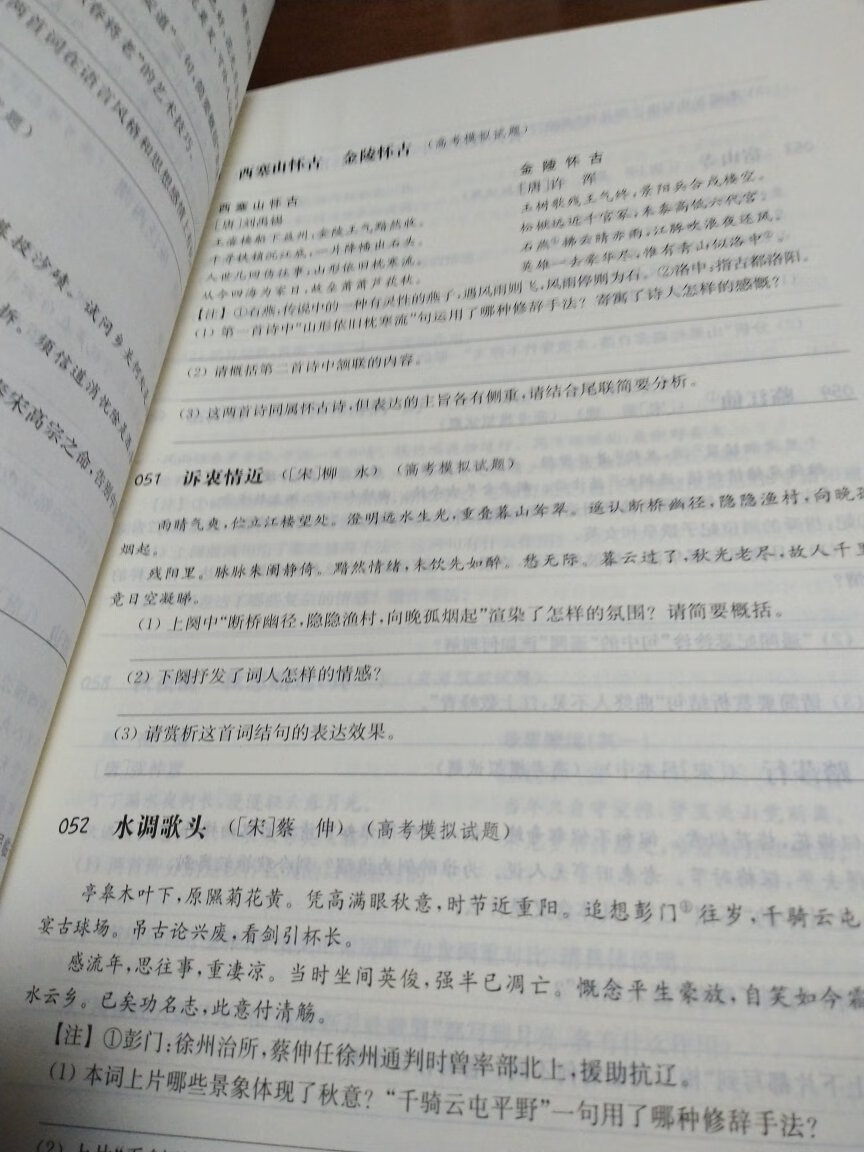 春将老”的艺术技巧。
两首词在语言风格和思想感情上
题)
沙碛。试问乡关何
拆。须信道消忧除是
宋高宗之命,告别
西塞山怀古 金陵怀古 (高考模拟试题)
西塞山怀古
[唐]刘禹锡
王濬楼船下益州,金陵王气黯然收。
千寻铁锁沉江底,一片降幡出石头。
人世几回伤往事,山形依旧枕寒流。
从今四海为家日,故垒萧萧芦荻秋。
金陵怀古
[唐]许 浑
玉树歌残王气终,景阳兵合戍楼空。
松楸远近千官冢,禾黍高低六代宫。
石燕①拂云晴亦雨,江豚吹浪夜还风。
英雄一去豪华尽,惟有青山似洛中②。
【注】①石燕:传说中的一种有灵性的燕子,遇风雨则飞,风雨停则为石。②洛中:指古都洛阳。
(1) 第一首诗中“山形依旧枕寒流”句运用了哪种修辞手法?寄寓了诗人怎样的感慨?
(2) 请概括第二首诗中颔联的内容。
(3) 这两首诗同属怀古诗,但表达的主旨各有侧重,请结合尾联简要分析。
051 诉衷情近 ([宋]柳 永) (高考模拟试题)
雨晴气爽,伫立江楼望处。澄明远水生光,重叠暮山耸翠。遥认断桥幽径,隐隐渔村,向晚孤
烟起。
残阳里。脉脉朱阑静倚。黯然情绪,未饮先如醉。愁无际。暮云过了,秋光老尽,故人千里
竟日空凝睇。
(1) 上阕中“断桥幽径,隐隐渔村,向晚孤烟起”渲染了怎样的氛围?请简要概括。
(2) 下阕抒发了词人怎样的情感?
(3) 请赏析这首词结句的表达效果。
052 水调歌头 ([宋]蔡 伸) (高考模拟试题)
亭皋木叶下,原隰菊花黄。凭高满眼秋意,时节近重阳。追想彭门①往岁,千骑云屯
宴古球场。吊古论兴废,看剑引杯长。
感流年,思往事,重凄凉。当时坐间英俊,强半已凋亡。慨念平生豪放,自笑如今霜
水云乡。已矣功名志,此意付清觞。
【注】①彭门:徐州治所,蔡伸任徐州通判时曾率部北上,援助抗辽。
(1) 本词上片哪些景象体现了秋意?“千骑云屯平野”一句用了哪种修辞手法?